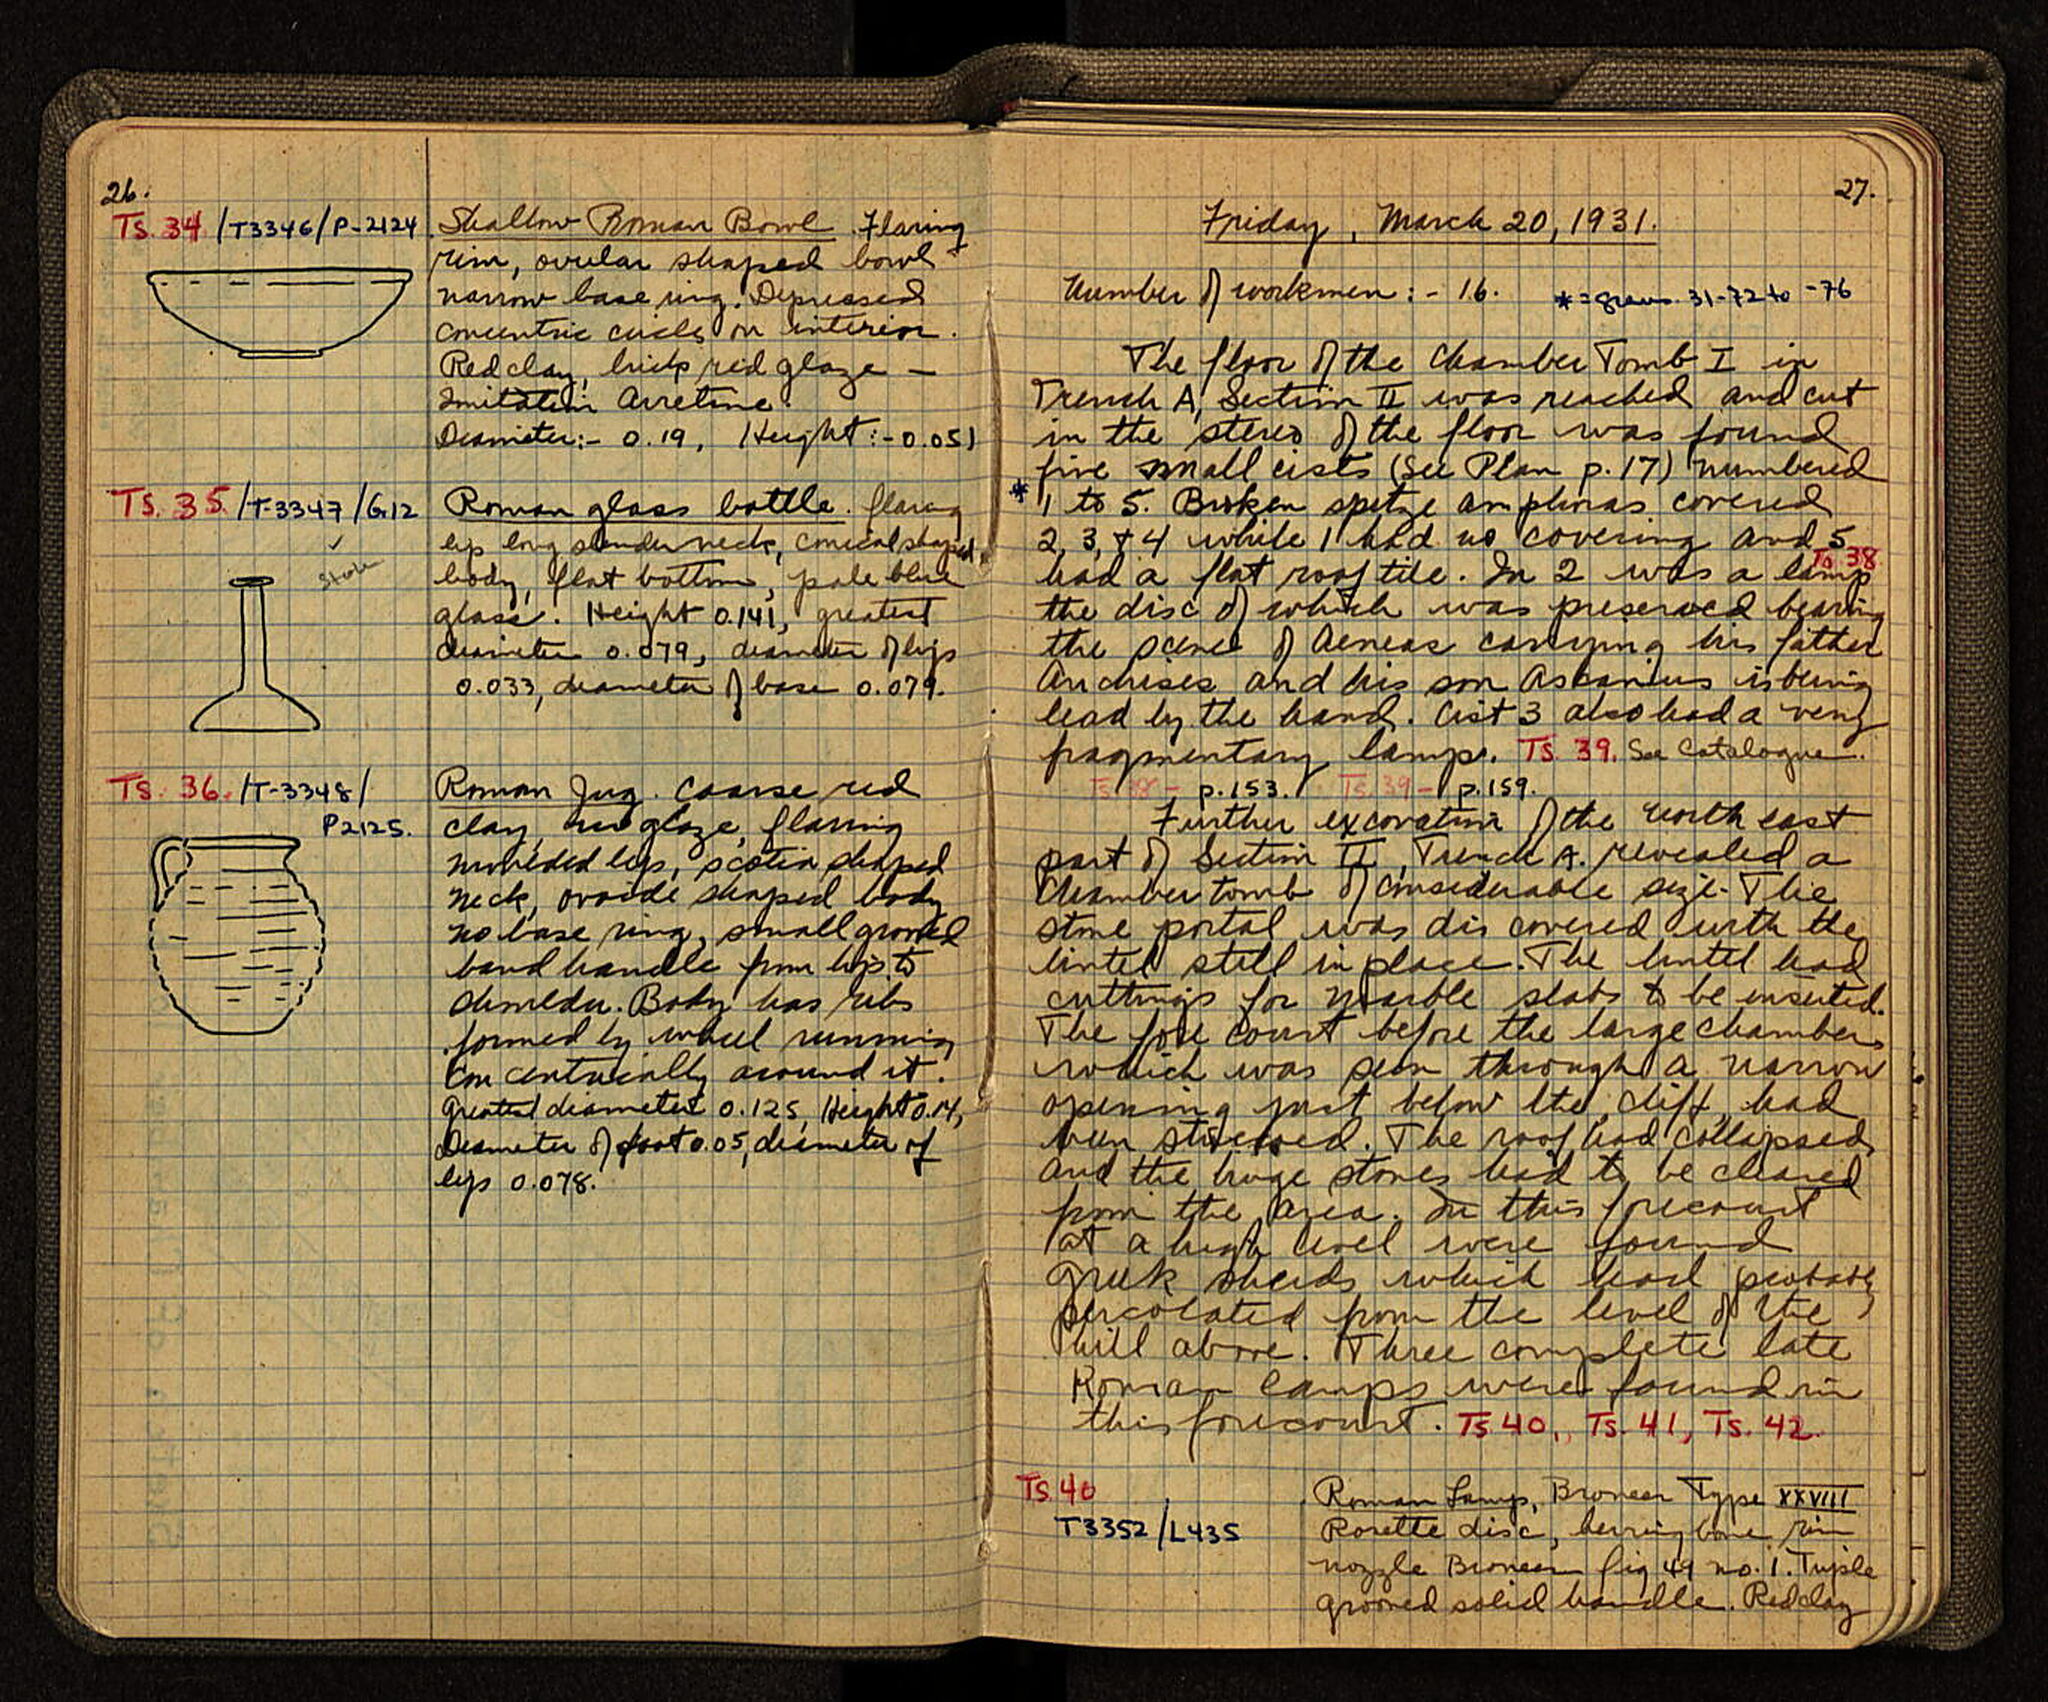 26.
Ts. 34 /T3346/P-2124
Shallow Roman Bowl. Flaring
rim, ovular shaped bowl
narrow base ring. Depressed
concentric circles on interior.
Red clay, brick red glaze –
Imitation Arretine.
Diameter:- 0.19, Height:- 0.051
Ts. 35. /T-3347/G12
✓
Roman glass bottle. flaring
lip long slender neck, conical shaped
body, flat bottom, pale blue
glass. Height 0.141, greatest
diameter 0.079, diameter of lips
0.033, diameter of base 0.079.
Ts. 36. /T-3348/
P2125.
Roman Jug. Coarse red
clay, no glaze, flaring
moulded lips, scotia shaped
neck, ovoide shaped body
no base ring, small grooved
band handle from lips to
shoulder. Body has ribs
formed by wheel running
concentrically around it.
Greatest diameter 0.125, Height 0.14,
Diameter of foot 0.05, diameter of
lips 0.078.
27.
Friday, March 20, 1931.
Number of workmen:- 16.
*= graves 31-72 to -76
The floor of the Chamber Tomb I in
Trench A, Section II was reached and cut
in the stereo of the floor was found
five small cists (See Plan p. 17) numbered
* 1 to 5. Broken spitze amphoras covered
2, 3, + 4 while 1 had no covering and 5
had a flat roof tile. In 2 was a lamp Ts 38
the disc of which was preserved bearing
the scene of Aeneas carrying his father
Anchises and his son Ascanius is being
lead by the hand. Cist 3 also had a very
fragmentary lamp. Ts. 39. See Catalogue.
Ts 38 – p. 153. Ts 39 – p. 159.
Further excavation of the north east
part of Section II, Trench A. revealed a
chamber tomb of considerable size. The
stone portal was discovered with the
lintel still in place. The lintel had
cuttings for marble slabs to be inserted.
The fore court before the large chamber,
which was seen through a narrow
opening just below the cliff, had
been stuccoed. The roof had collapsed
and the huge stones had to be cleared
from the area. In this forecourt
at a high level were found
Greek sherds which had probably
percolated from the level of the
hill above. Three complete late
Roman lamps were found in
this forecourt. Ts 40, Ts. 41, Ts. 42.
Ts. 40
T3352/L435
Roman Lamp, Broneer Type XXVIII
Rosette disc, herring bone rim
nozzle Broneer fig 49 no. 1. Triple
grooved solid handle. Red clay